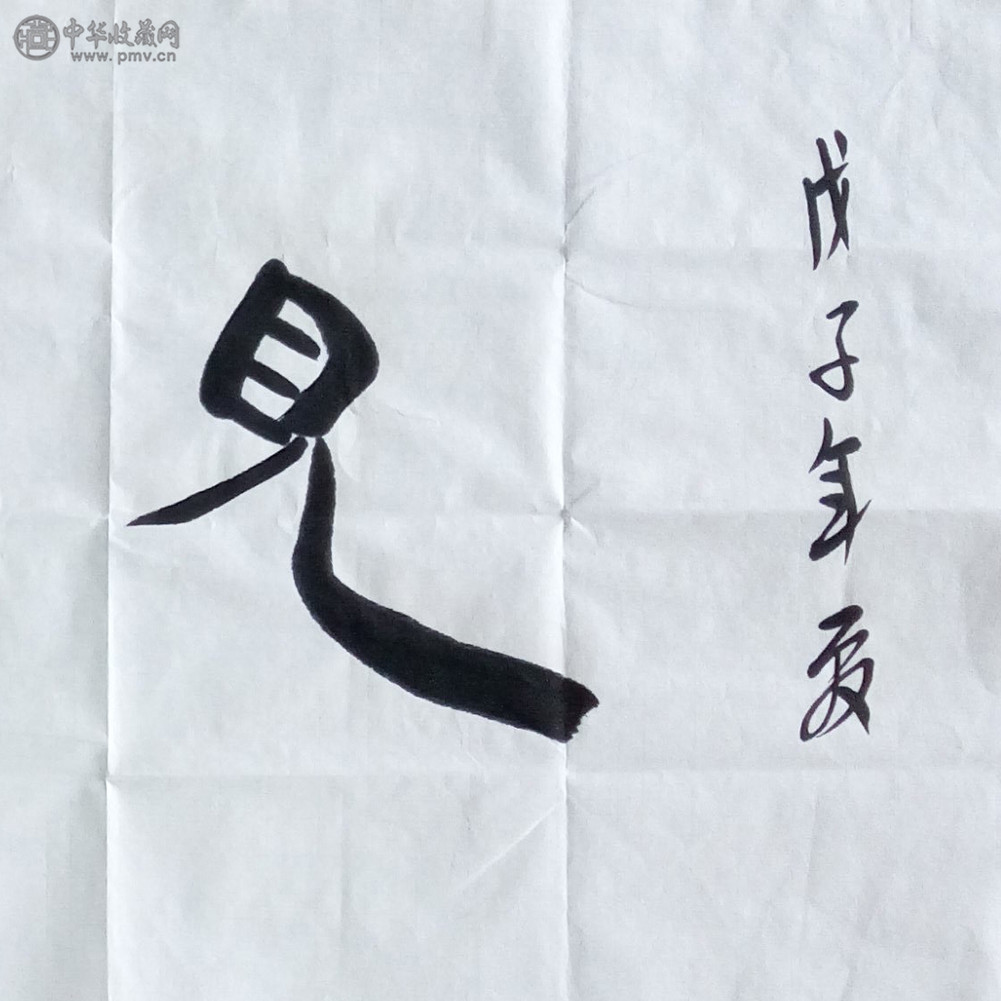 中华收藏网
www.pmv.cn
戊子年夏
見